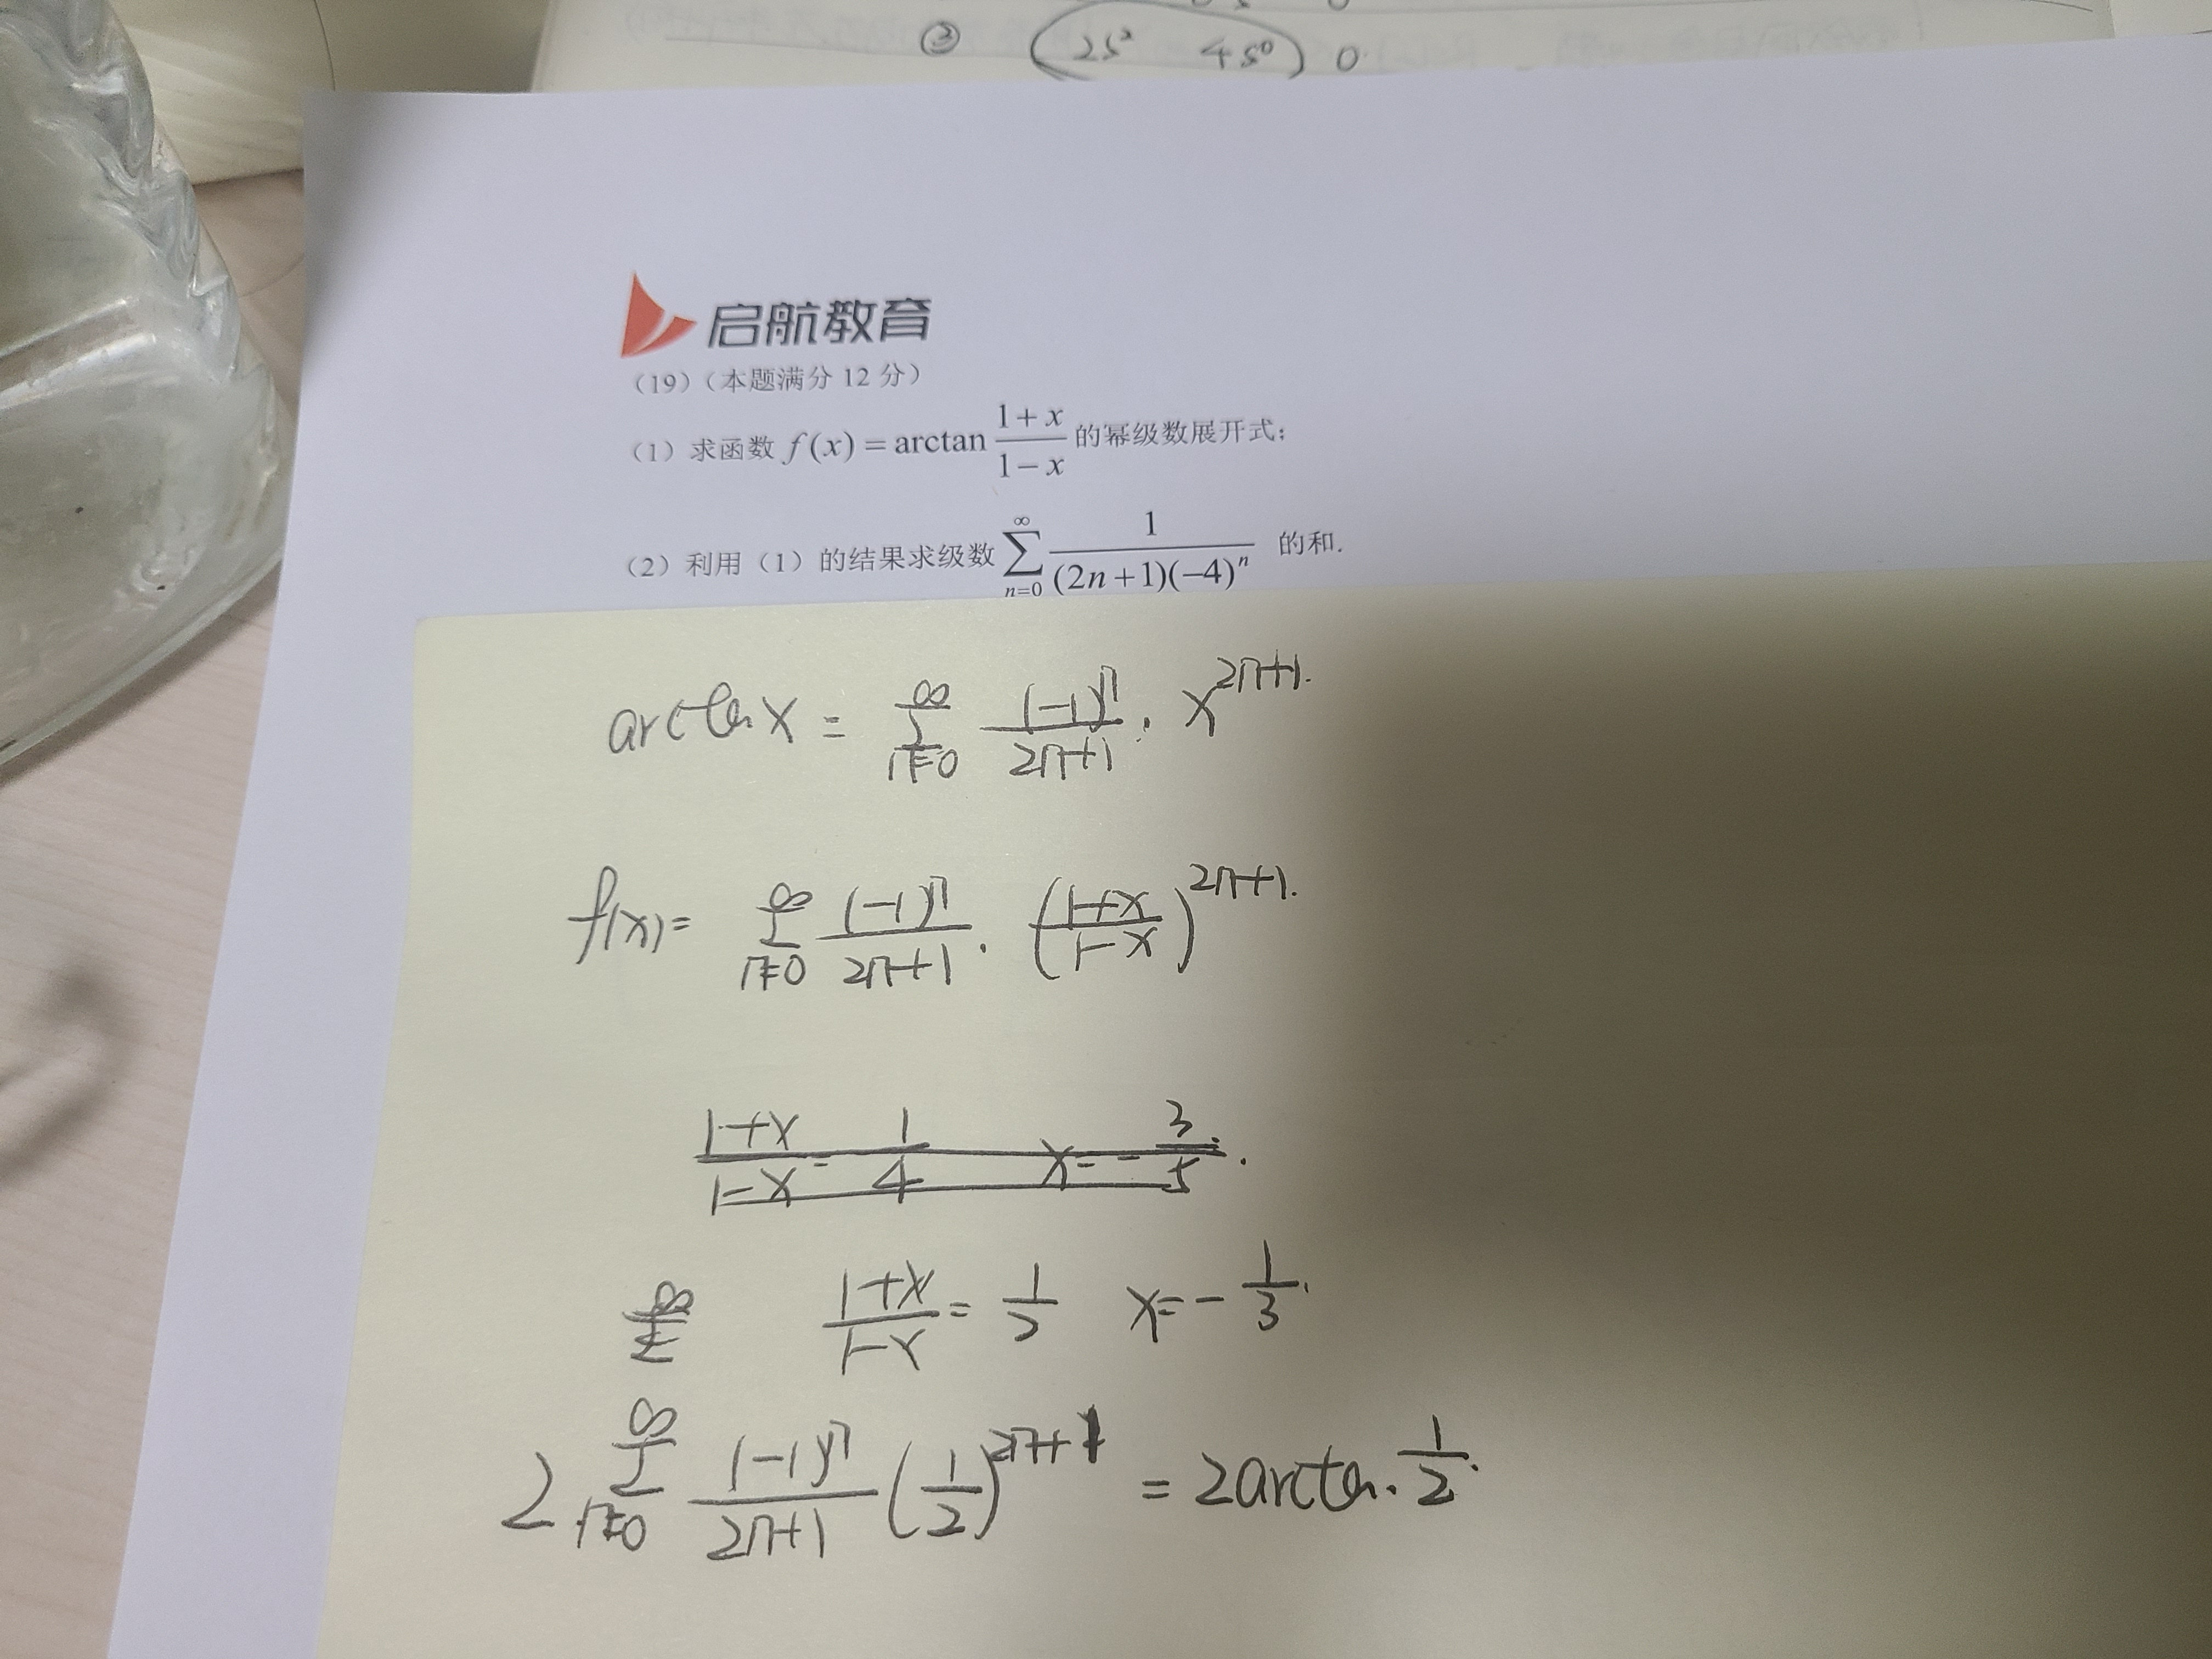 ③ 2S² 4S⁰ 0
启航教育
（19）（本题满分 12 分）
（1）求函数 f(x) = arctan \frac{1+x}{1-x} 的幂级数展开式；
（2）利用（1）的结果求级数 \sum_{n=0}^{∞} \frac{1}{(2n+1)(-4)^n} 的和.
arctan x = \sum_{n=0}^{∞} \frac{(-1)^n}{2n+1} · x^{2n+1}.
f(x) = \sum_{n=0}^{∞} \frac{(-1)^n}{2n+1} · (\frac{1+x}{1-x})^{2n+1}.
\frac{1+x}{1-x} = \frac{1}{4} x = -\frac{3}{5}.
\frac{1+x}{1-x} = \frac{1}{2} x = -\frac{1}{3}.
2 \sum_{n=0}^{∞} \frac{(-1)^n}{2n+1} (\frac{1}{2})^{2n+1} = 2arctan · \frac{1}{2}.